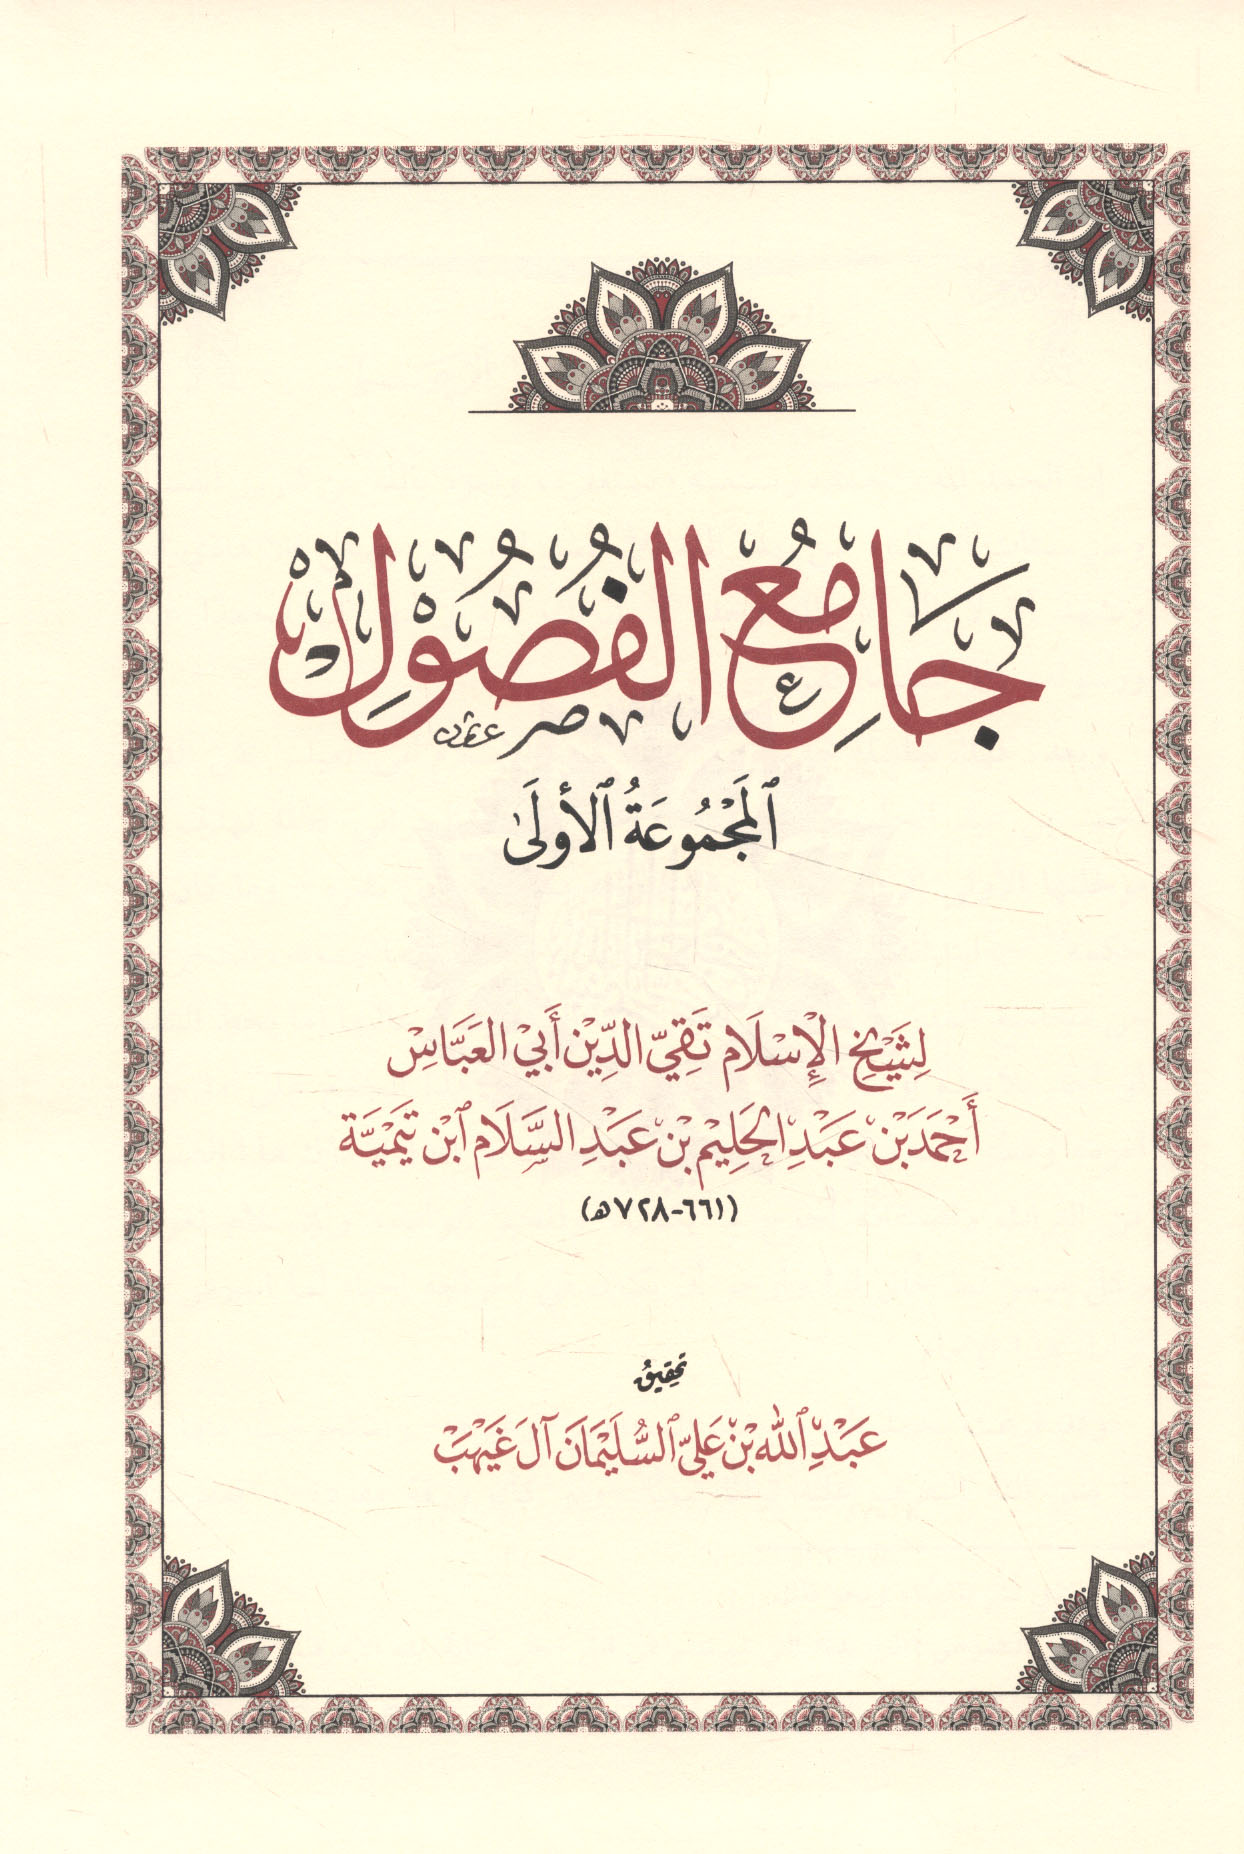 جَامِعُ الفُصُولِ
ٱلْمَجْمُوعَةُ ٱلْأُولَىٰ
لِشَيْخِ الْإِسْلَامِ تَقِيِّ الدِّيْنِ أَبِي الْعَبَّاسِ
أَحْمَدَ بْنِ عَبْدِ الْحَلِيْمِ بْنِ عَبْدِ السَّلَامِ ٱبْنِ تَيْمِيَّةَ
(٦٦١-٧٢٨هـ)
تَحْقِيْقُ
عَبْدِ ٱللَّهِ بْنِ عَلِيِّ ٱلسُّلَيْمَانَ آلَ غَيْهَبْ